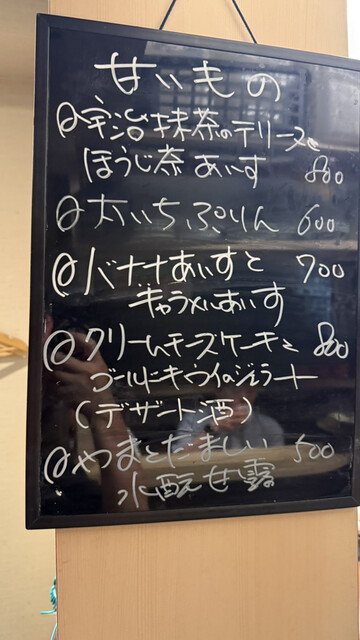 甘いもの
宇治抹茶のテリーヌと
ほうじ茶あいす 800
太いちぷりん 600
バナナあいすと 700
キャラメルあいす
クリームチーズケーキと 800
ゴールドキウイのジェラート
(デザート酒)
やまとだましい 500
水酛甘露